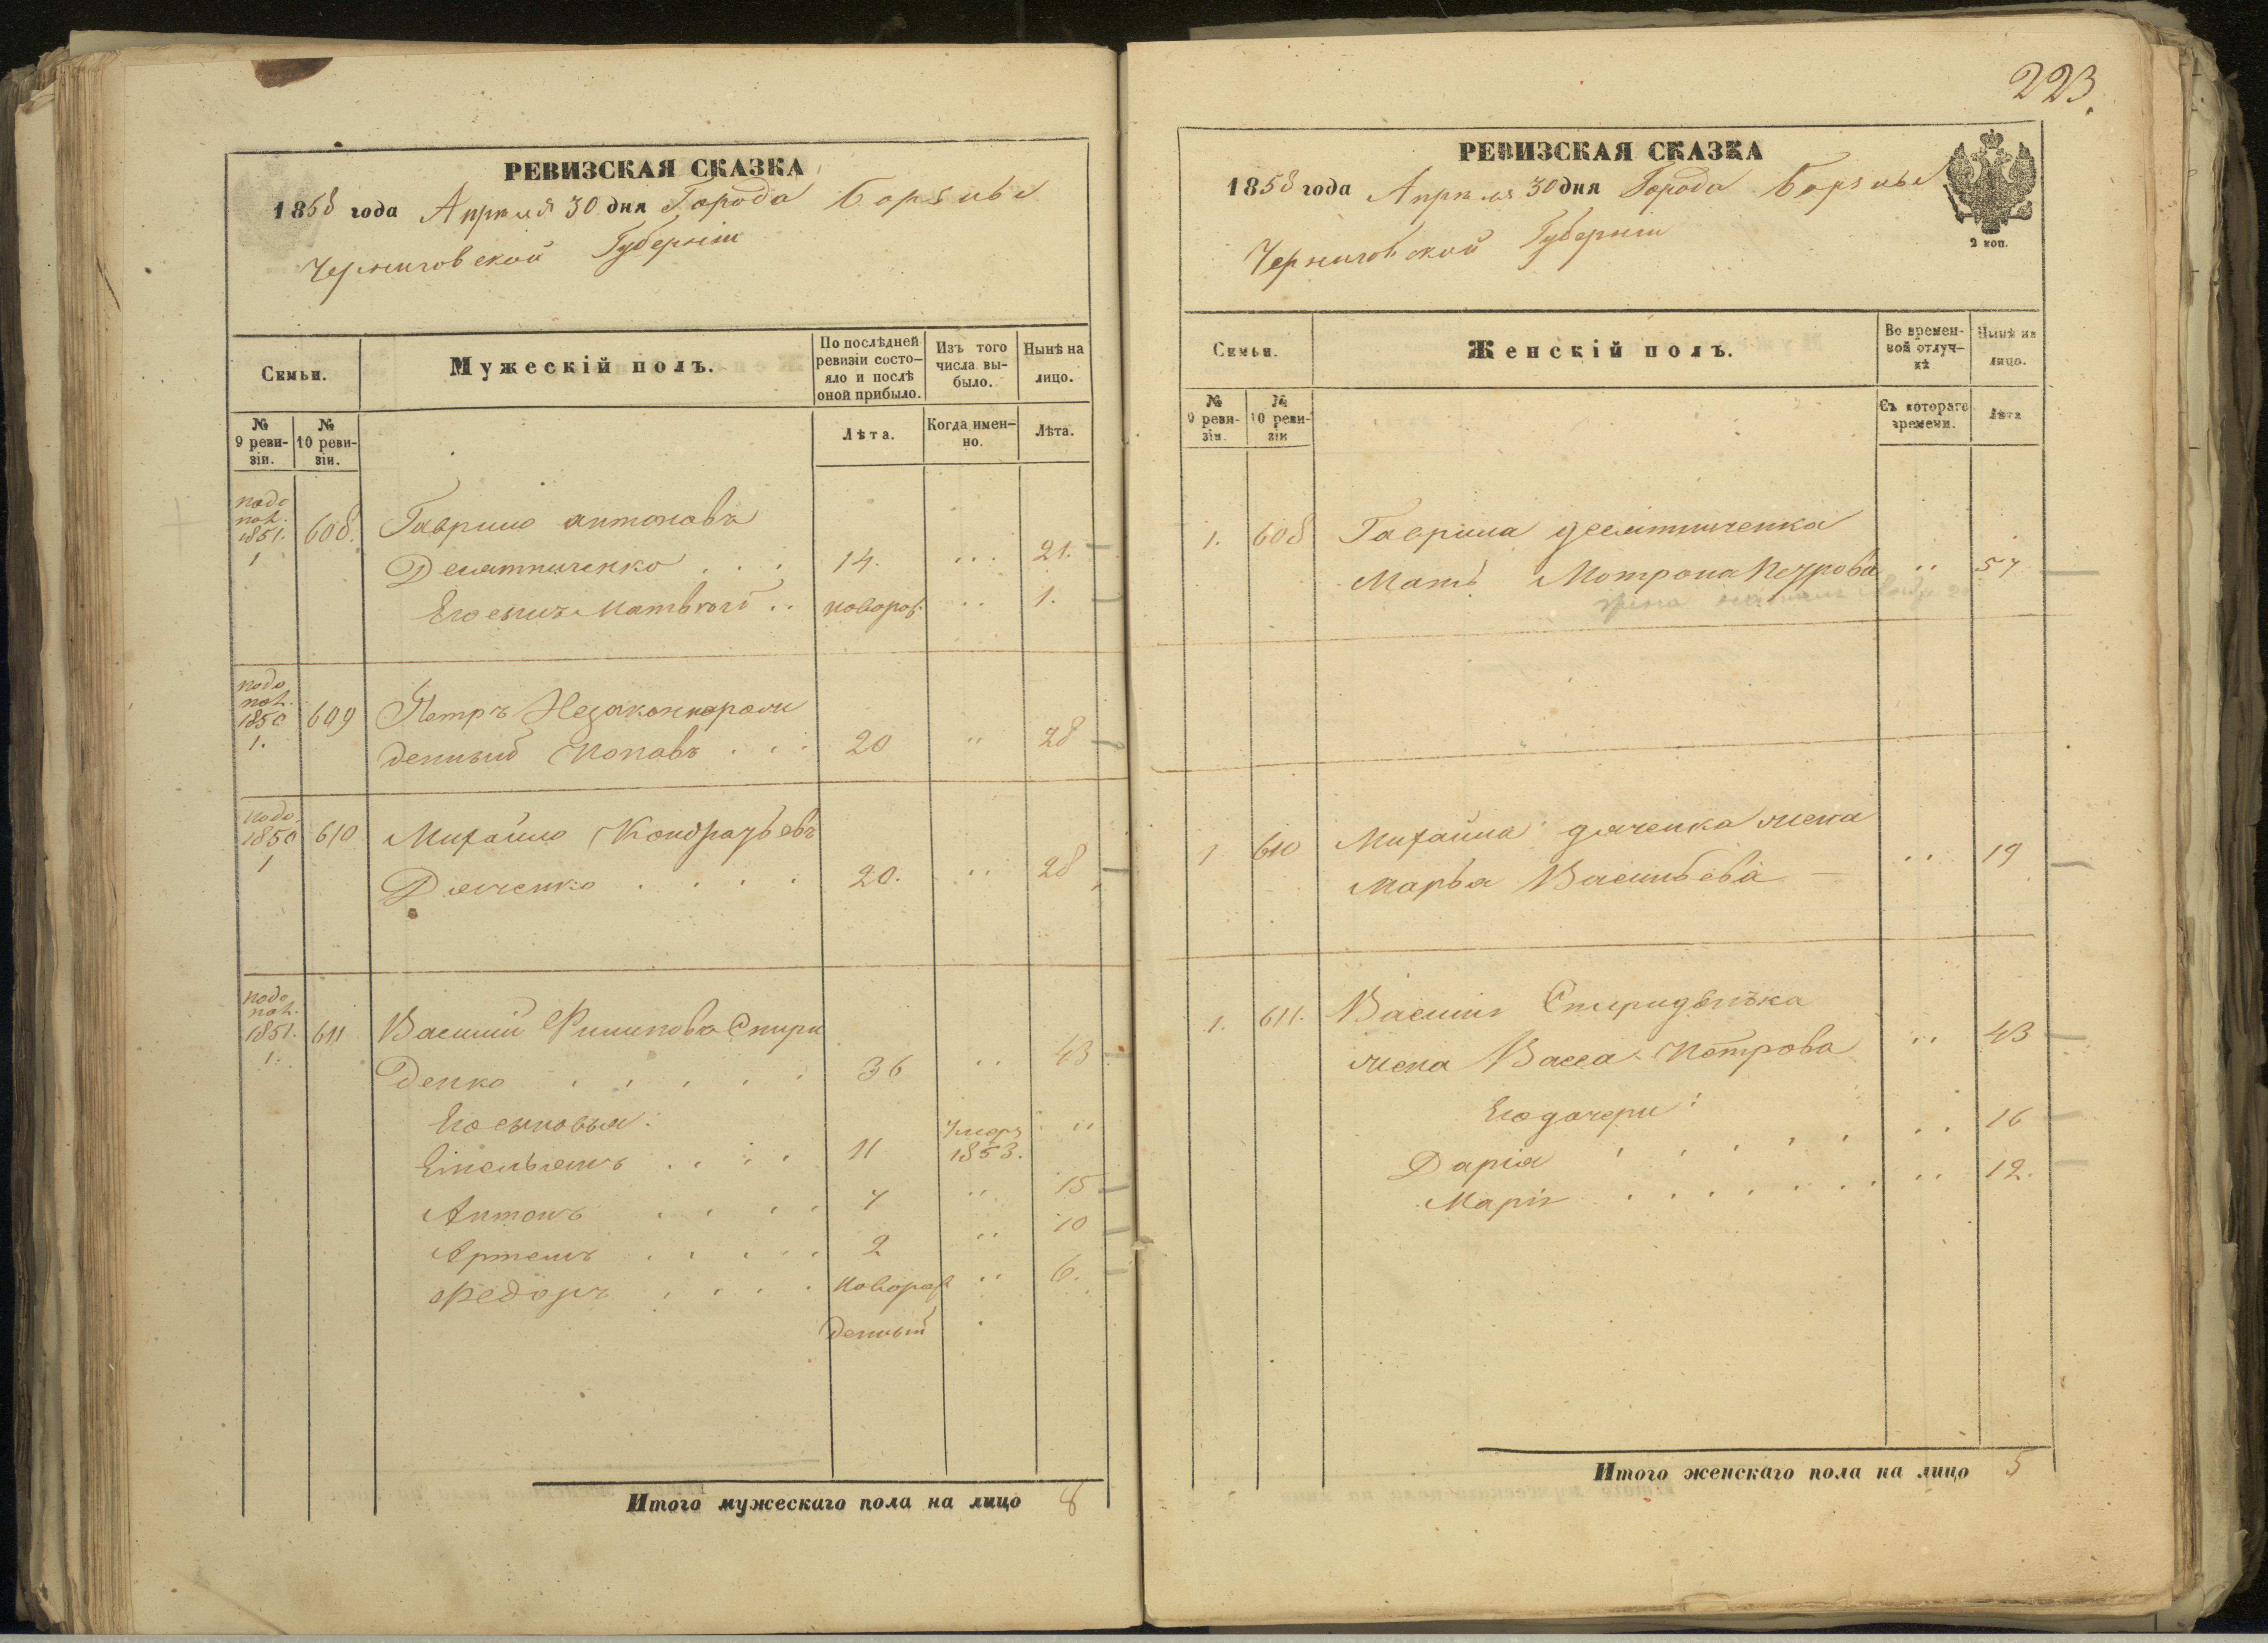 223.
РЕВИЗСКАЯ СКАЗКА
1858 года Апрѣля 30 дня Города Борзны
Черниговской Губерніи
Семьи.
Мужескій полъ.
По послѣдней ревизіи состояло и послѣ оной прибыло.
Изъ того числа выбыло.
Нынѣ на лицо.
№ 9 ревизіи.
№ 10 ревизіи.
Лѣта.
Когда имен-но.
Лѣта.
1851. 608. Гаврило Антоновъ
1 Десятниченко . . . 14. ... 21.
Его сынъ Матвѣй .. новорож. .. 1.
1850 609 Петръ Незаконнорож
1. денный Поповъ . . . 20 " 28
1850 610 Михайло Кондратьевъ
1 Дяченко . . . . 20. .. 28
1851. 611 Василий Филиповъ Спири
1. денко . . . . . 36 .. 43
Его сыновья:
Емельянъ . . . . 11 Умеръ 1853. "
Антонъ . . . . 7 " 15
Артемъ . . . . . 2 " 10
Федоръ . . . . новорож " 6.
денный
Итого мужескаго пола на лицо 8
РЕВИЗСКАЯ СКАЗКА
1858 года Апрѣля 30 дня Города Борзны
Черниговской Губерніи
2 коп.
Семьи.
Женскій полъ.
Во времен-ной отлуч-кѣ
Нынѣ на лицо.
№ 9 реви-зіи.
№ 10 реви-зіи
Съ котораго времени.
Лѣта
1. 608 Гаврила Десятниченка
Мать Мотрона Петрова .. 57
жена
1 610 Михайла Дяченка жена
Марья Васильева .. 19
1. 611. Василія Спириденъка
жена Васса Петрова .. 43
Его дочери:
Дарія . . . . . .. 16
Марія . . . . . . . .. 12.
Итого женскаго пола на лицо 5